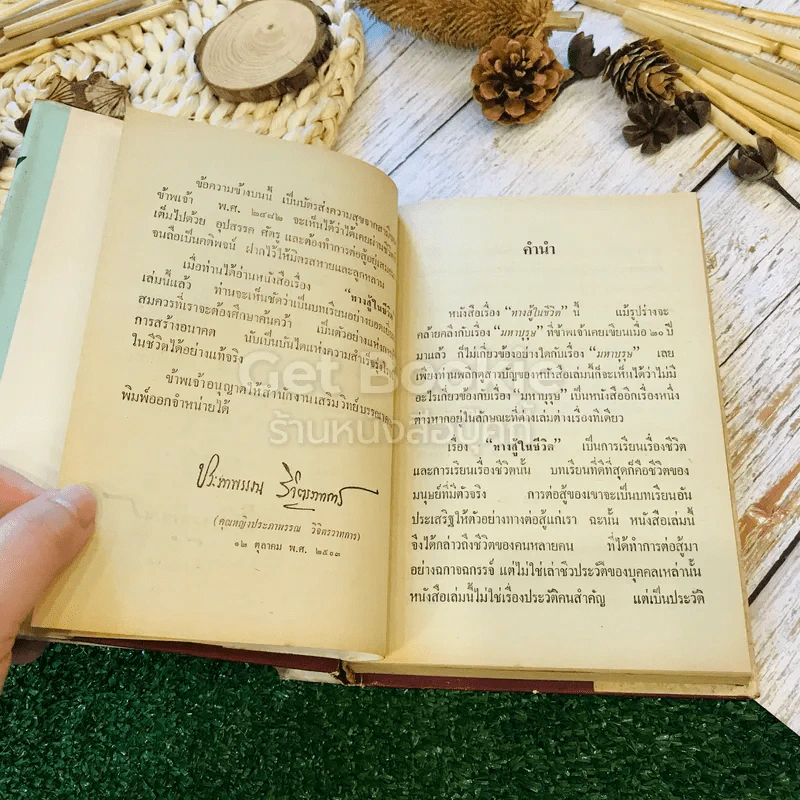 ข้อความข้างบนนี้ เป็นบัตรส่งความสุขจาก
ข้าพเจ้า พ.ศ. ๒๔๘๒ จะเห็นได้ว่าได้เคยผ่านชีวิต
เต็มไปด้วย อุปสรรค ศัตรู และต้องทำการต่อสู้อยู่
จนถือเป็นคติพจน์ ฝากไว้ให้มิตรสหายและลูกหลาน
เมื่อท่านได้อ่านหนังสือเรื่อง "ทางสู้ในชีวิต"
เล่มนี้แล้ว ท่านจะเห็นชัดว่าเป็นบทเรียนอย่าง
สมควรที่เราจะต้องศึกษาค้นคว้า เป็นตัวอย่างแห่ง
การสร้างอนาคต นับเป็นบันไดแห่งความสำเร็จ
ในชีวิตได้อย่างแท้จริง
ข้าพเจ้าอนุญาตให้สำนักงานเสริมวิทย์บรรณาคาร
พิมพ์ออกจำหน่ายได้
ประภาพรรณ วิจิตรวาทการ
(คุณหญิงประภาพรรณ วิจิตรวาทการ)
๑๒ ตุลาคม พ.ศ. ๒๕๐๓
คำนำ
หนังสือเรื่อง "ทางสู้ในชีวิต" นี้ แม้รูปร่างจะ
คล้ายคลึงกับเรื่อง "มหาบุรุษ" ที่ข้าพเจ้าเคยเขียนเมื่อ ๒๐ ปี
มาแล้ว ก็ไม่เกี่ยวข้องอย่างใดกับเรื่อง "มหาบุรุษ" เลย
เพียงท่านพลิกดูสารบัญของหนังสือเล่มนี้ก็จะเห็นได้ว่าไม่มี
อะไรเกี่ยวข้องกับเรื่อง "มหาบุรุษ" เป็นหนังสืออีกเรื่องหนึ่ง
ต่างหากอยู่ในลักษณะที่ต่างเล่มต่างเรื่องทีเดียว
เรื่อง "ทางสู้ในชีวิต" เป็นการเรียนเรื่องชีวิต
และการเรียนเรื่องชีวิตนั้น บทเรียนที่ดีที่สุดก็คือชีวิตของ
มนุษย์ที่มีตัวจริง การต่อสู้ของเขาจะเป็นบทเรียนอัน
ประเสริฐให้ตัวอย่างทางต่อสู้แก่เรา ฉะนั้น หนังสือเล่มนี้
จึงได้กล่าวถึงชีวิตของคนหลายคน ที่ได้ทำการต่อสู้มา
อย่างฉกาจฉกรรจ์ แต่ไม่ใช่เล่าชีวประวัติของบุคคลเหล่านั้น
หนังสือเล่มนี้ไม่ใช่เรื่องประวัติคนสำคัญ แต่เป็นประวัติ
Get Bookie
ร้านหนังสือบุ๊คกี้